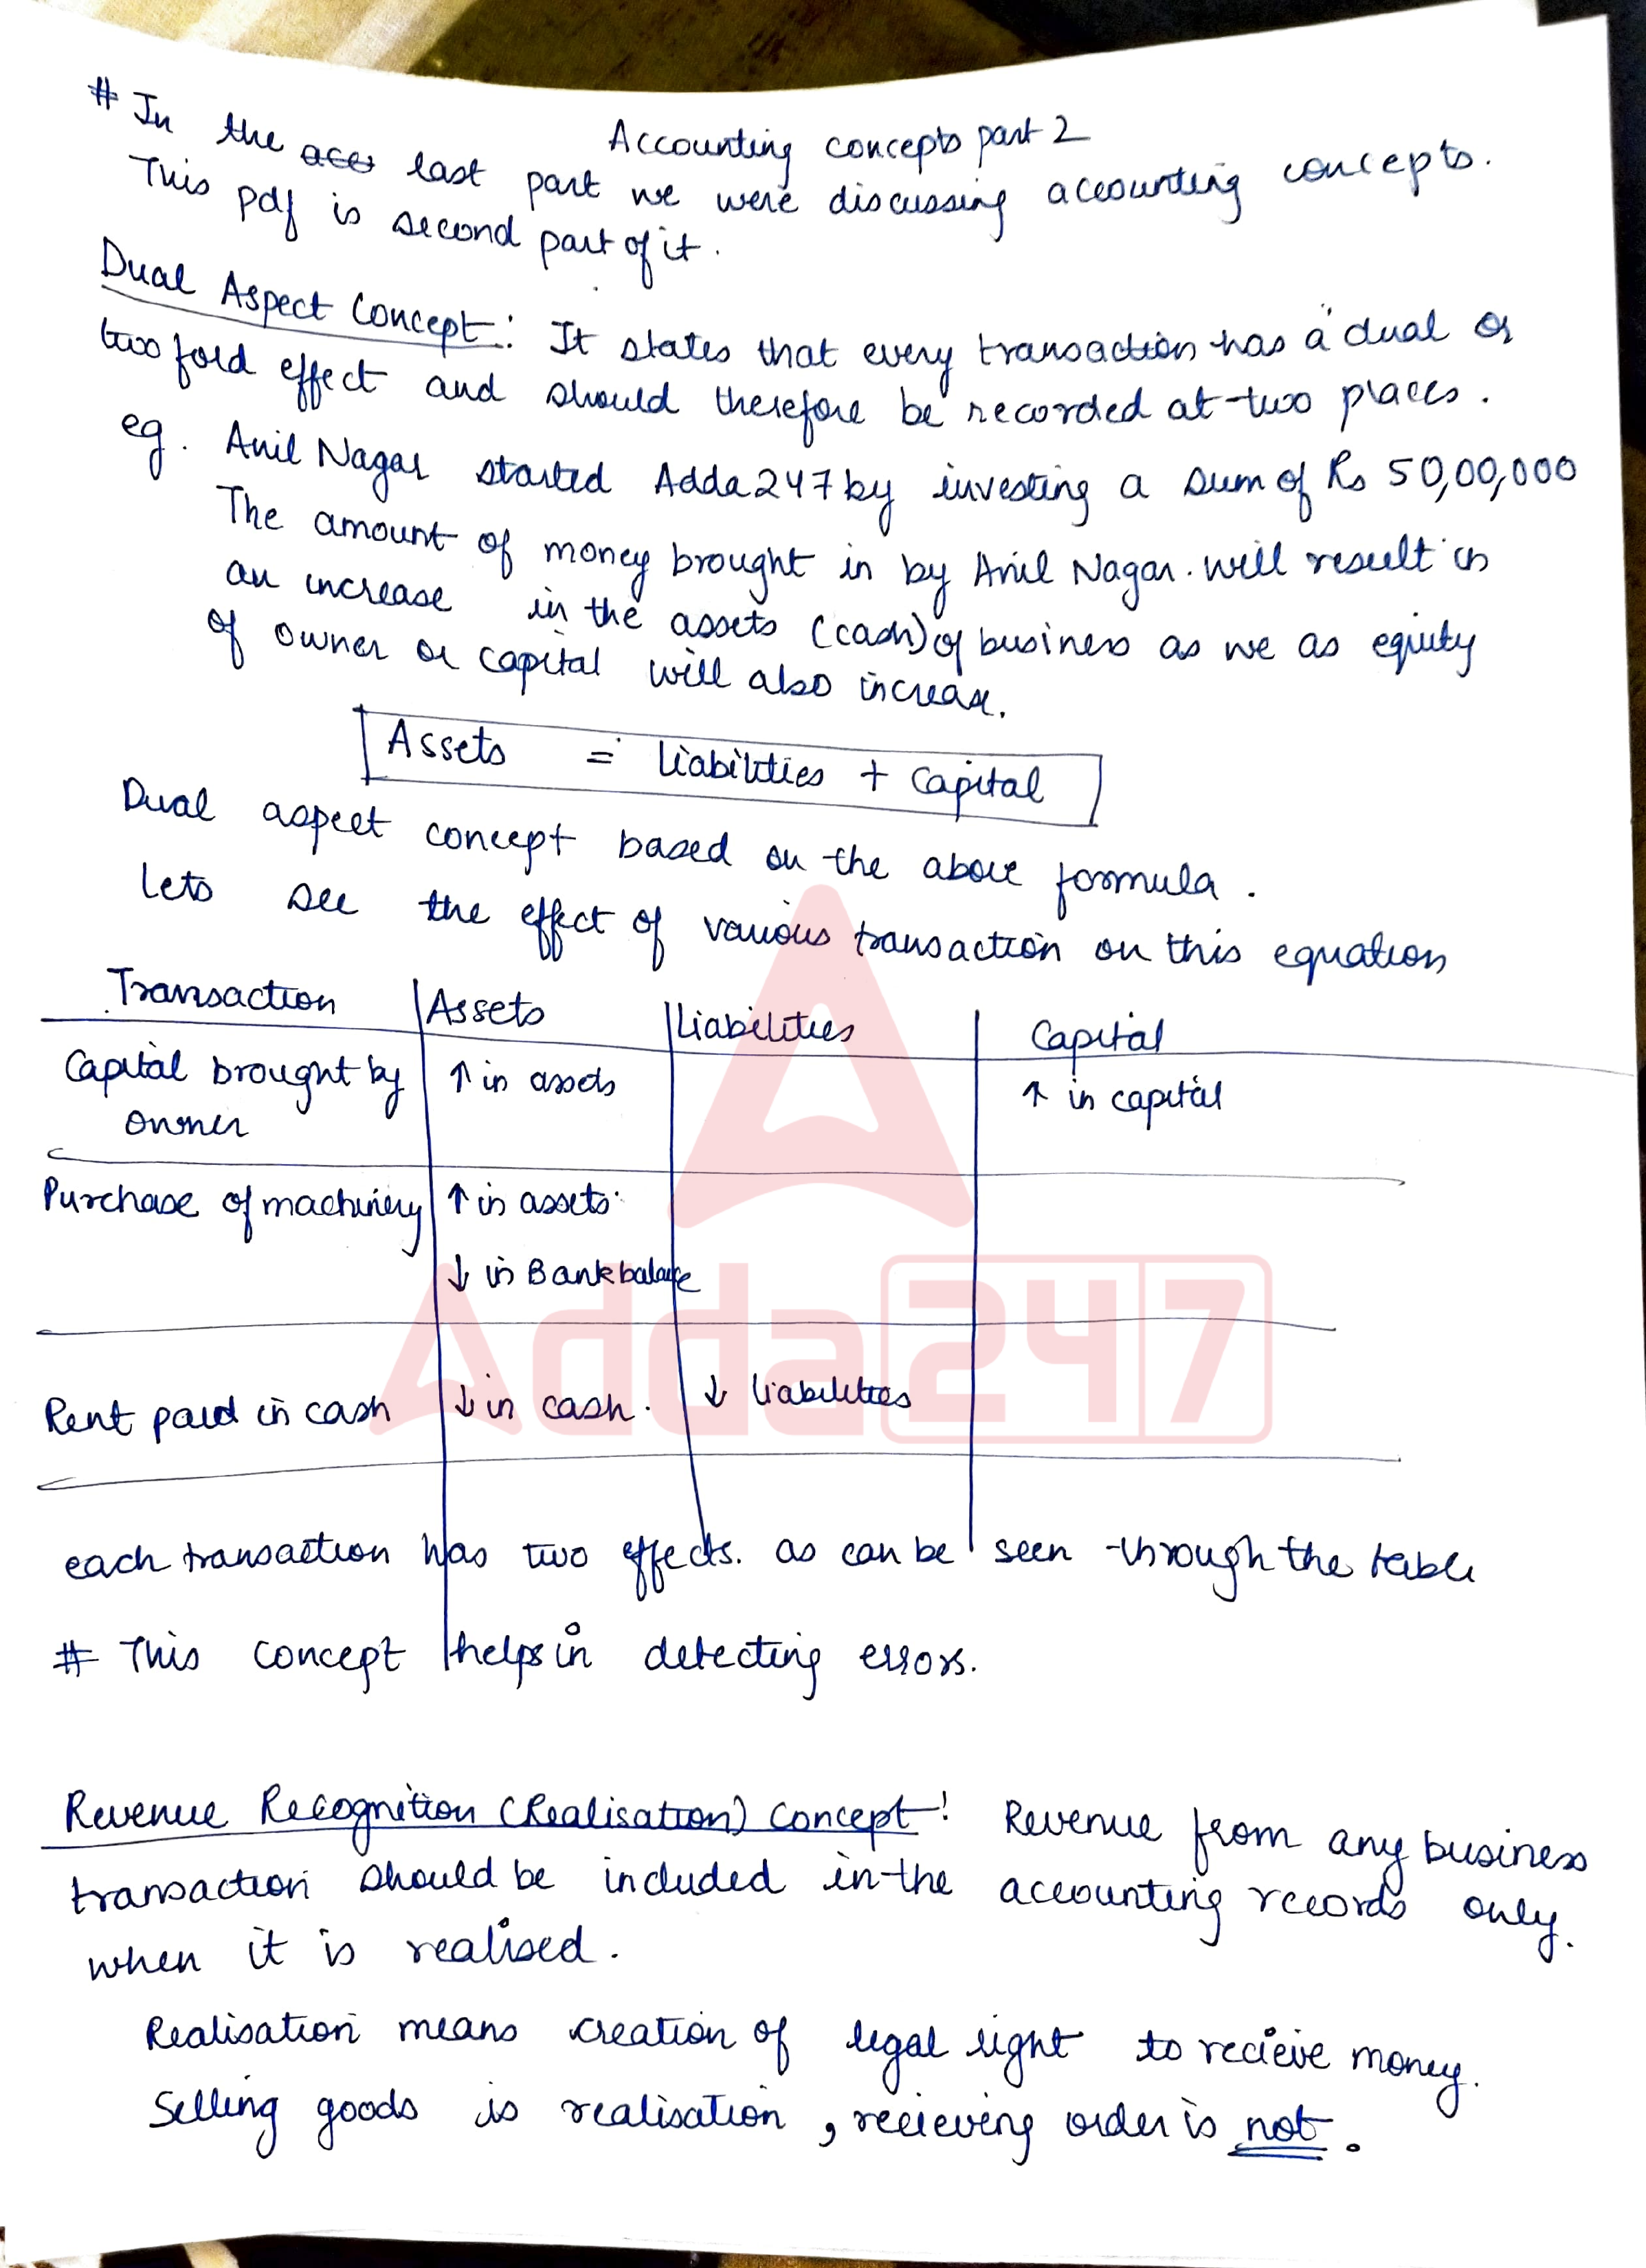 Accounting concepts part 2
# In the acco last part we were discussing accounting concepts.
This pdf is second part of it.
Dual Aspect Concept: It states that every transaction has a dual or
two fold effect and should therefore be recorded at two places.
eg. Anil Nagar started Adda247 by investing a sum of Rs 50,00,000
The amount of money brought in by Anil Nagar. will result in
an increase in the assets (cash) of business as we as equity
of owner or capital will also increase.
Assets = Liabilities + Capital
Dual aspect concept based on the above formula.
Lets see the effect of various transaction on this equation
Transaction Assets Liabilities Capital
Capital brought by ↑ in assets ↑ in capital
owner
Purchase of machinery ↑ in assets
↓ in Bank balance
Adda247
Rent paid in cash ↓ in cash. ↓ liabilities
each transaction has two effects. as can be seen through the table
# This concept helps in detecting errors.
Revenue Recognition (Realisation) Concept: Revenue from any business
transaction should be included in the accounting records only.
when it is realised.
Realisation means creation of legal right to recieve money.
Selling goods is realisation, recieving order is not.